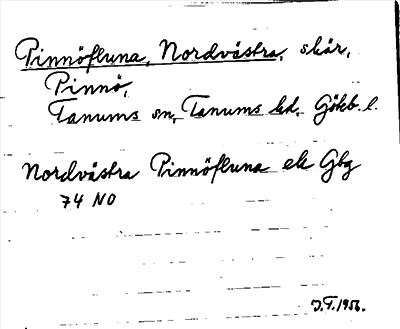 Pinnöfluna, Nordvästra, skär,
Pinnö,
Tanums sn, Tanums hd. Gökb. l.
Nordvästra Pinnöfluna ek Gbg
74 NO
J.F. 1956.